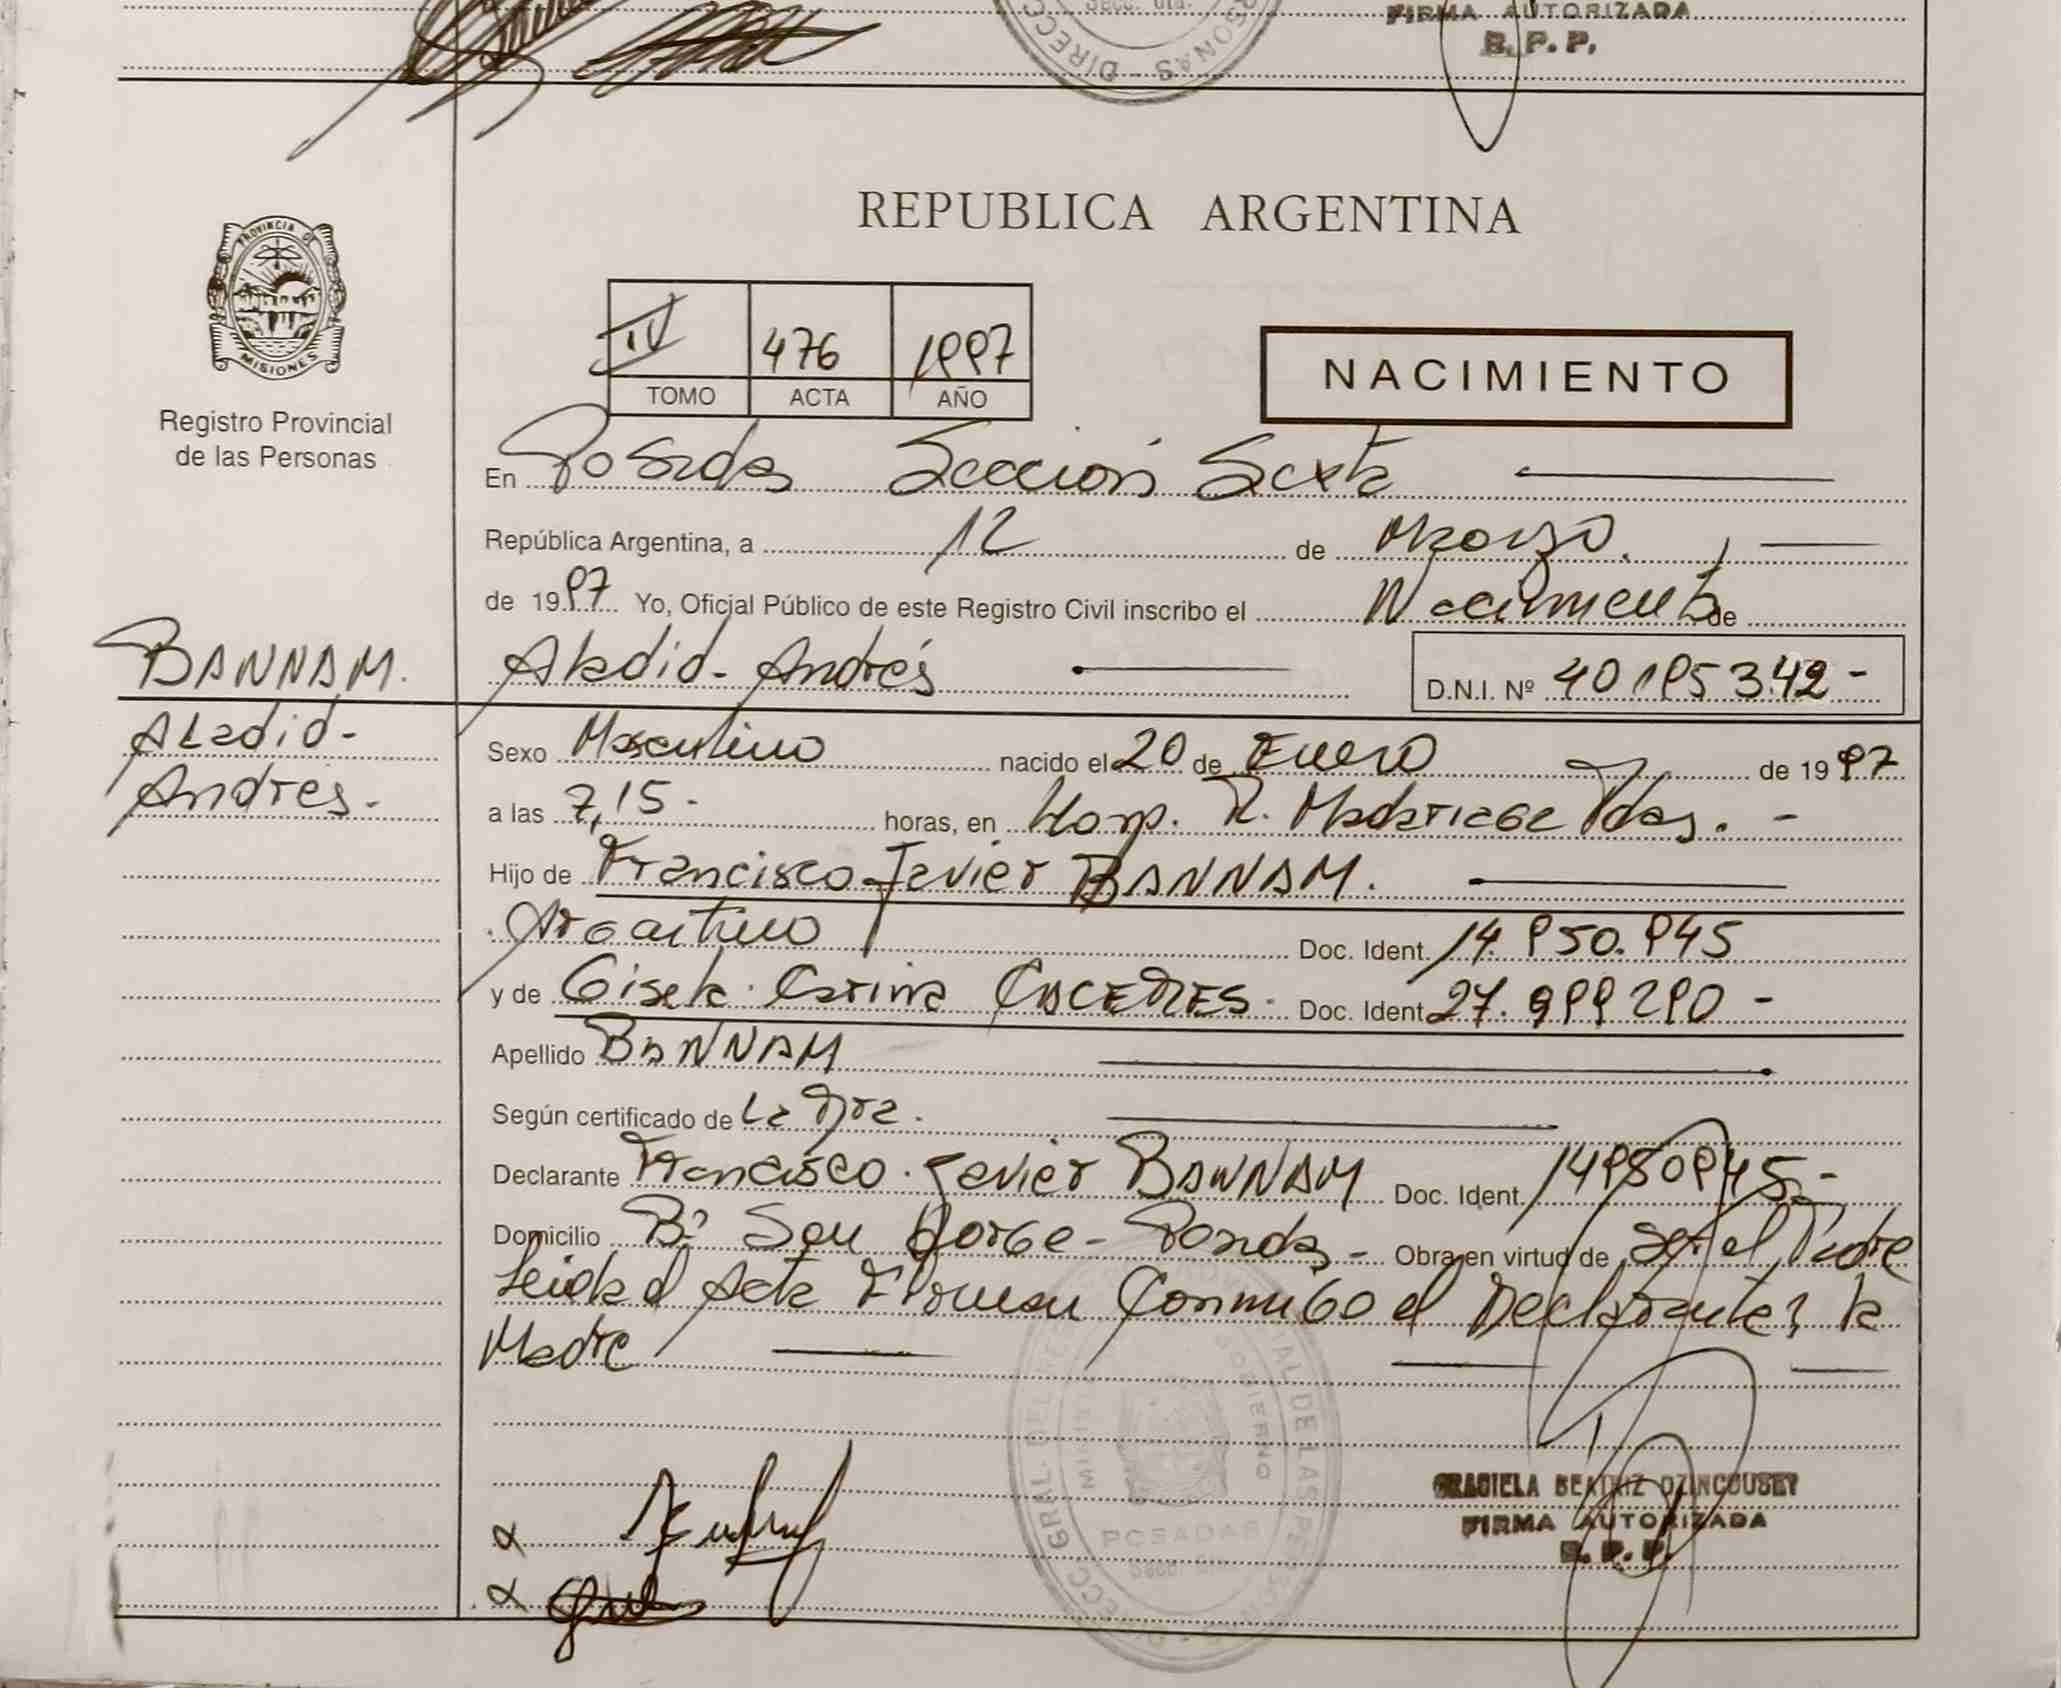 SECC. 6ta.
DIRECC
RSONAS
FIRMA AUTORIZADA
R. P. P.
REPUBLICA ARGENTINA
PROVINCIA DE
MISIONES
Registro Provincial
de las Personas
IV 476 1997
TOMO ACTA AÑO
NACIMIENTO
En Posadas Sección Sexta
República Argentina, a 12 de Marzo.
de 1997 Yo, Oficial Público de este Registro Civil inscribo el Nacimiento de
BANNAM. Aladid - Andrés D.N.I. Nº 40195342 -
Aladid -
Andres -
Sexo Masculino nacido el 20 de Enero de 1997
a las 7,15 - horas, en Hosp. R. Madariaga Pdas. -
Hijo de Francisco Javier BANNAM.
Argentino Doc. Ident. 14.950.945
y de Gisela Carina CACERES - Doc. Ident. 27.999290 -
Apellido BANNAM
Según certificado de La Dra.
Declarante Francisco Javier BANNAM Doc. Ident. 14950945 -
Domicilio Bº San Jorge - Posadas - Obra en virtud de ser el Padre
Leida el Acta Firman Conmigo el Declarante y la
Madre
GRACIELA BEATRIZ
FIRMA AUTORIZADA
R. P. P.
POSADAS